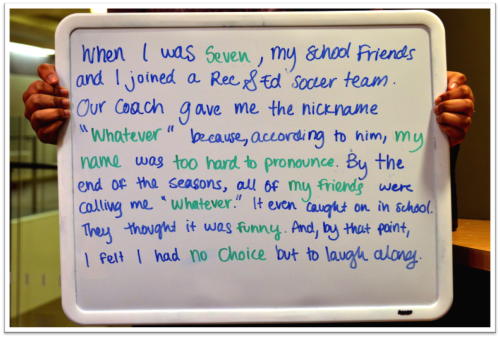 When I was Seven, my school Friends
and I joined a Rec & Ed soccer team.
Our Coach gave me the nickname
"Whatever" because, according to him, my
name was too hard to pronounce. By the
end of the seasons, all of my friends were
calling me "Whatever." It even caught on in school.
They thought it was funny. And, by that point,
I felt I had no Choice but to laugh along.